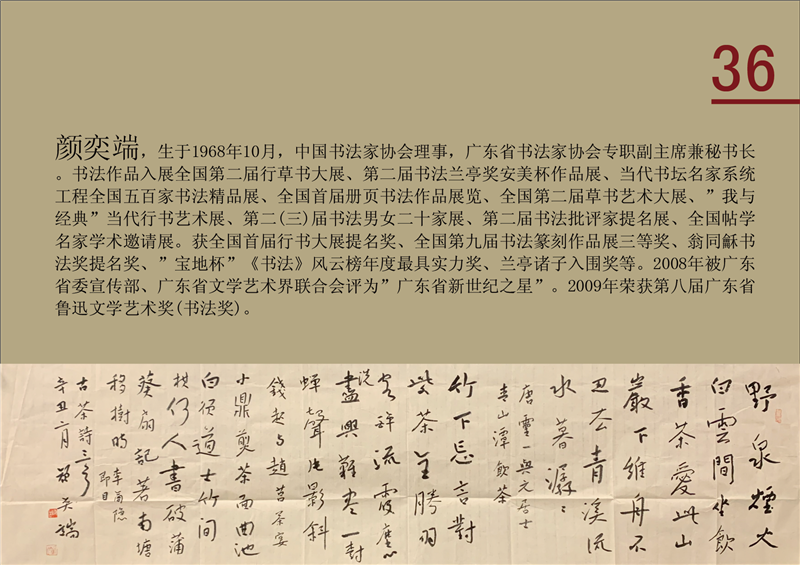 36
颜奕端，生于1968年10月，中国书法家协会理事，广东省书法家协会专职副主席兼秘书长
。书法作品入展全国第二届行草书大展、第二届书法兰亭奖安美杯作品展、当代书坛名家系统
工程全国五百家书法精品展、全国首届册页书法作品展览、全国第二届草书艺术大展、”我与
经典”当代行书艺术展、第二(三)届书法男女二十家展、第二届书法批评家提名展、全国帖学
名家学术邀请展。获全国首届行书大展提名奖、全国第九届书法篆刻作品展三等奖、翁同龢书
法奖提名奖、”宝地杯”《书法》风云榜年度最具实力奖、兰亭诸子入围奖等。2008年被广东
省委宣传部、广东省文学艺术界联合会评为”广东省新世纪之星”。2009年荣获第八届广东省
鲁迅文学艺术奖(书法奖)。
野泉煙火
白雲間坐飲
香茶愛此山
巖下維舟不
忍去青溪流
水暮潺〻
唐靈一與元居士
青山潭飲茶
竹下忘言對
紫茶全勝羽
客醉流霞塵心
洗
盡興難盡一對
蟬聲片影斜
錢起与趙莒茶宴
小鼎煎茶面曲池
白須道士竹间
棋何人書破蒲
葵扇記著南塘
移樹时
李商隱
即目
古茶詩三首
辛丑二月颜奕端